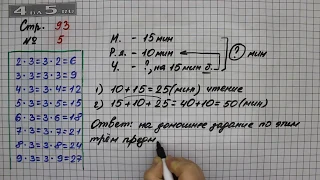 4 НА 5 RU
Стр. 93
№ 5
2·3=3·2=6
3·3=3·3=9
4·3=3·4=12
5·3=3·5=15
6·3=3·6=18
7·3=3·7=21
8·3=3·8=24
9·3=3·9=27
М. - 15 мин
Р.я. - 10 мин
Ч. - ?, на 15 мин б.
? мин
1) 10+15=25(мин) чтение
2) 15+10+25=40+10=50(мин)
Ответ: на домашнее задание по этим
трём предм